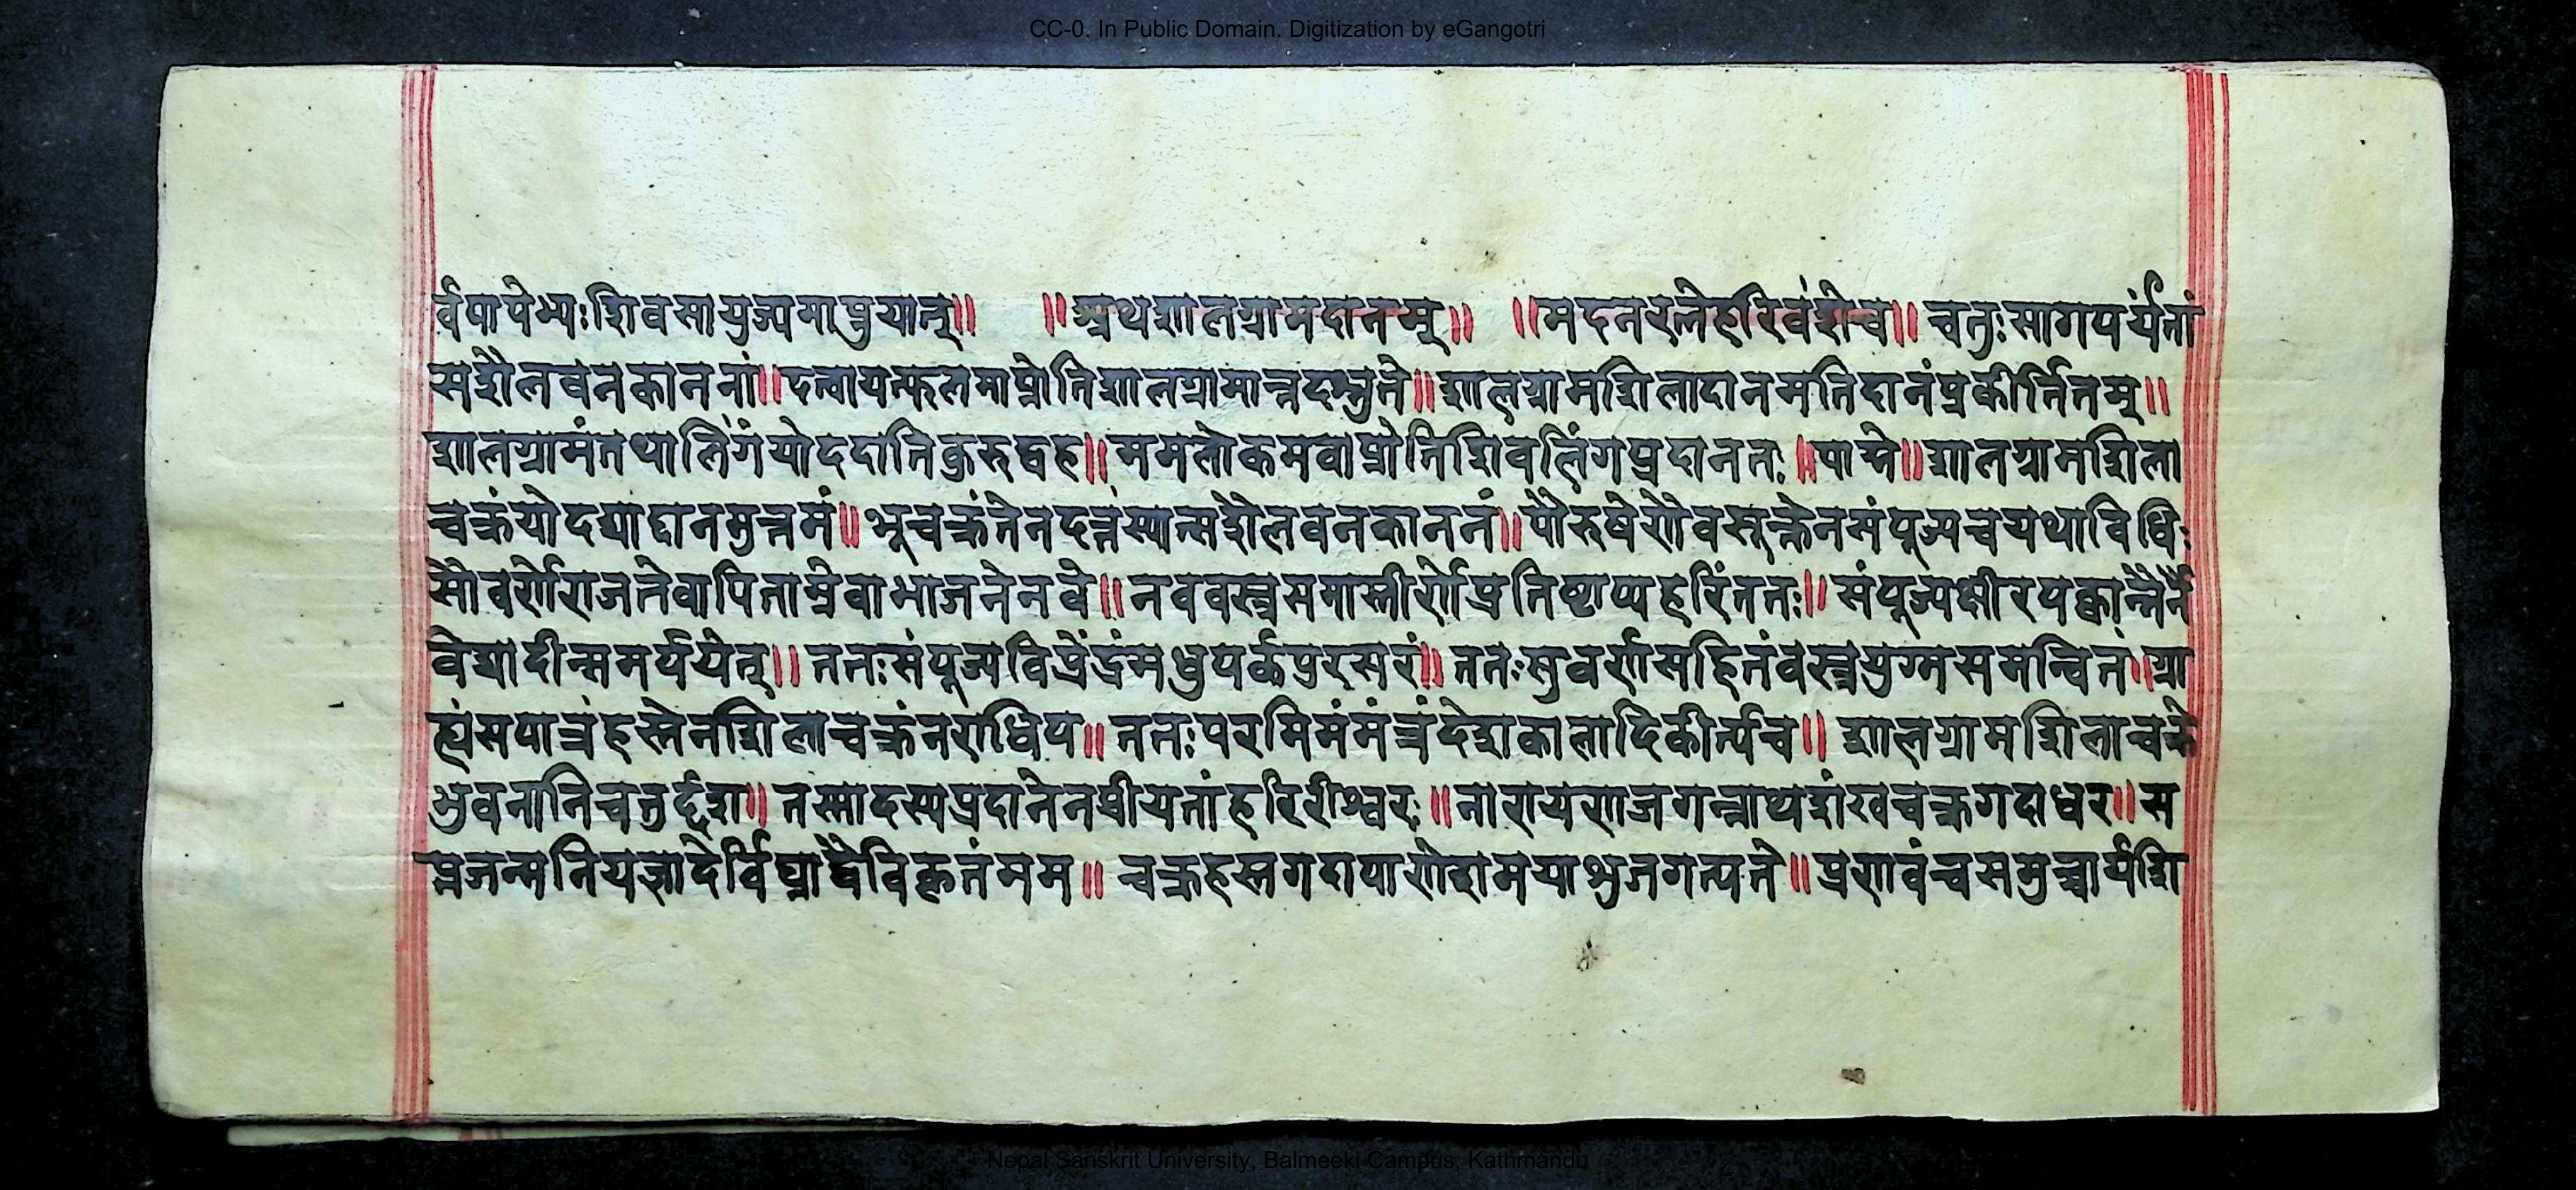 CC-0. In Public Domain. Digitization by eGangotri
र्वपापेभ्यःशिवसायुज्यमाप्नुयात्॥ ॥अथशालग्रामदानम्॥ ॥मदनरत्नेहरिवंशेच॥ चतुःसागपर्यंतां
सशैलवनकाननां॥ दत्वायत्फलमाप्नोतिशालग्रामान्नदश्नुते॥ शालग्रामशिलादानमतिदानंप्रकीर्त्तितम्॥
शालग्रामंतथालिंगंयोददातिकुरुद्वह॥ ममलोकमवाप्नोतिशिवलिंगप्रदानतः॥ पाद्मे॥ शालग्रामशिला
चक्रंयोदद्याद्दानमुत्तमं॥ भूचक्रंतेनदत्तंस्यात्सशैलवनकाननं॥ पौरुषेणैवसूक्तेनसंपूज्यचयथाविधिः
सौवर्णेराजतेवापिताम्रेवाभाजनेनवे॥ नववस्त्रसमास्तीर्णेप्रतिष्ठाप्यहरिंततः॥ संपूज्यक्षीरपक्वान्नैर्नै
वेद्यादीन्समर्पयेत्॥ ततःसंपूज्यविप्रेंद्रंमधुपर्कपुरःसरं॥ ततःसुवर्णसहितंवस्त्रयुग्मसमन्वितं॥ ग्रा
ह्यंसपात्रंहस्तेनशिलाचक्रंनराधिप॥ ततःपरमिमंमंत्रंदेशकालादिकीर्त्यच॥ शालग्रामशिलाचक्रे
भुवनानिचतुर्द्दश॥ तस्मादस्यप्रदानेनप्रीयतांहरिरीश्वरः॥ नारायणजगन्नाथशंखचक्रगदाधर॥ स
प्तजन्मनियज्ञादेर्विघ्नाद्वैविकृतंमम॥ चक्रहस्तगदापाणेशमयाभुजगत्पते॥ प्रणवंचसमुच्चार्यशि
Nepal Sanskrit University, Balmeeki Campus, Kathmandu